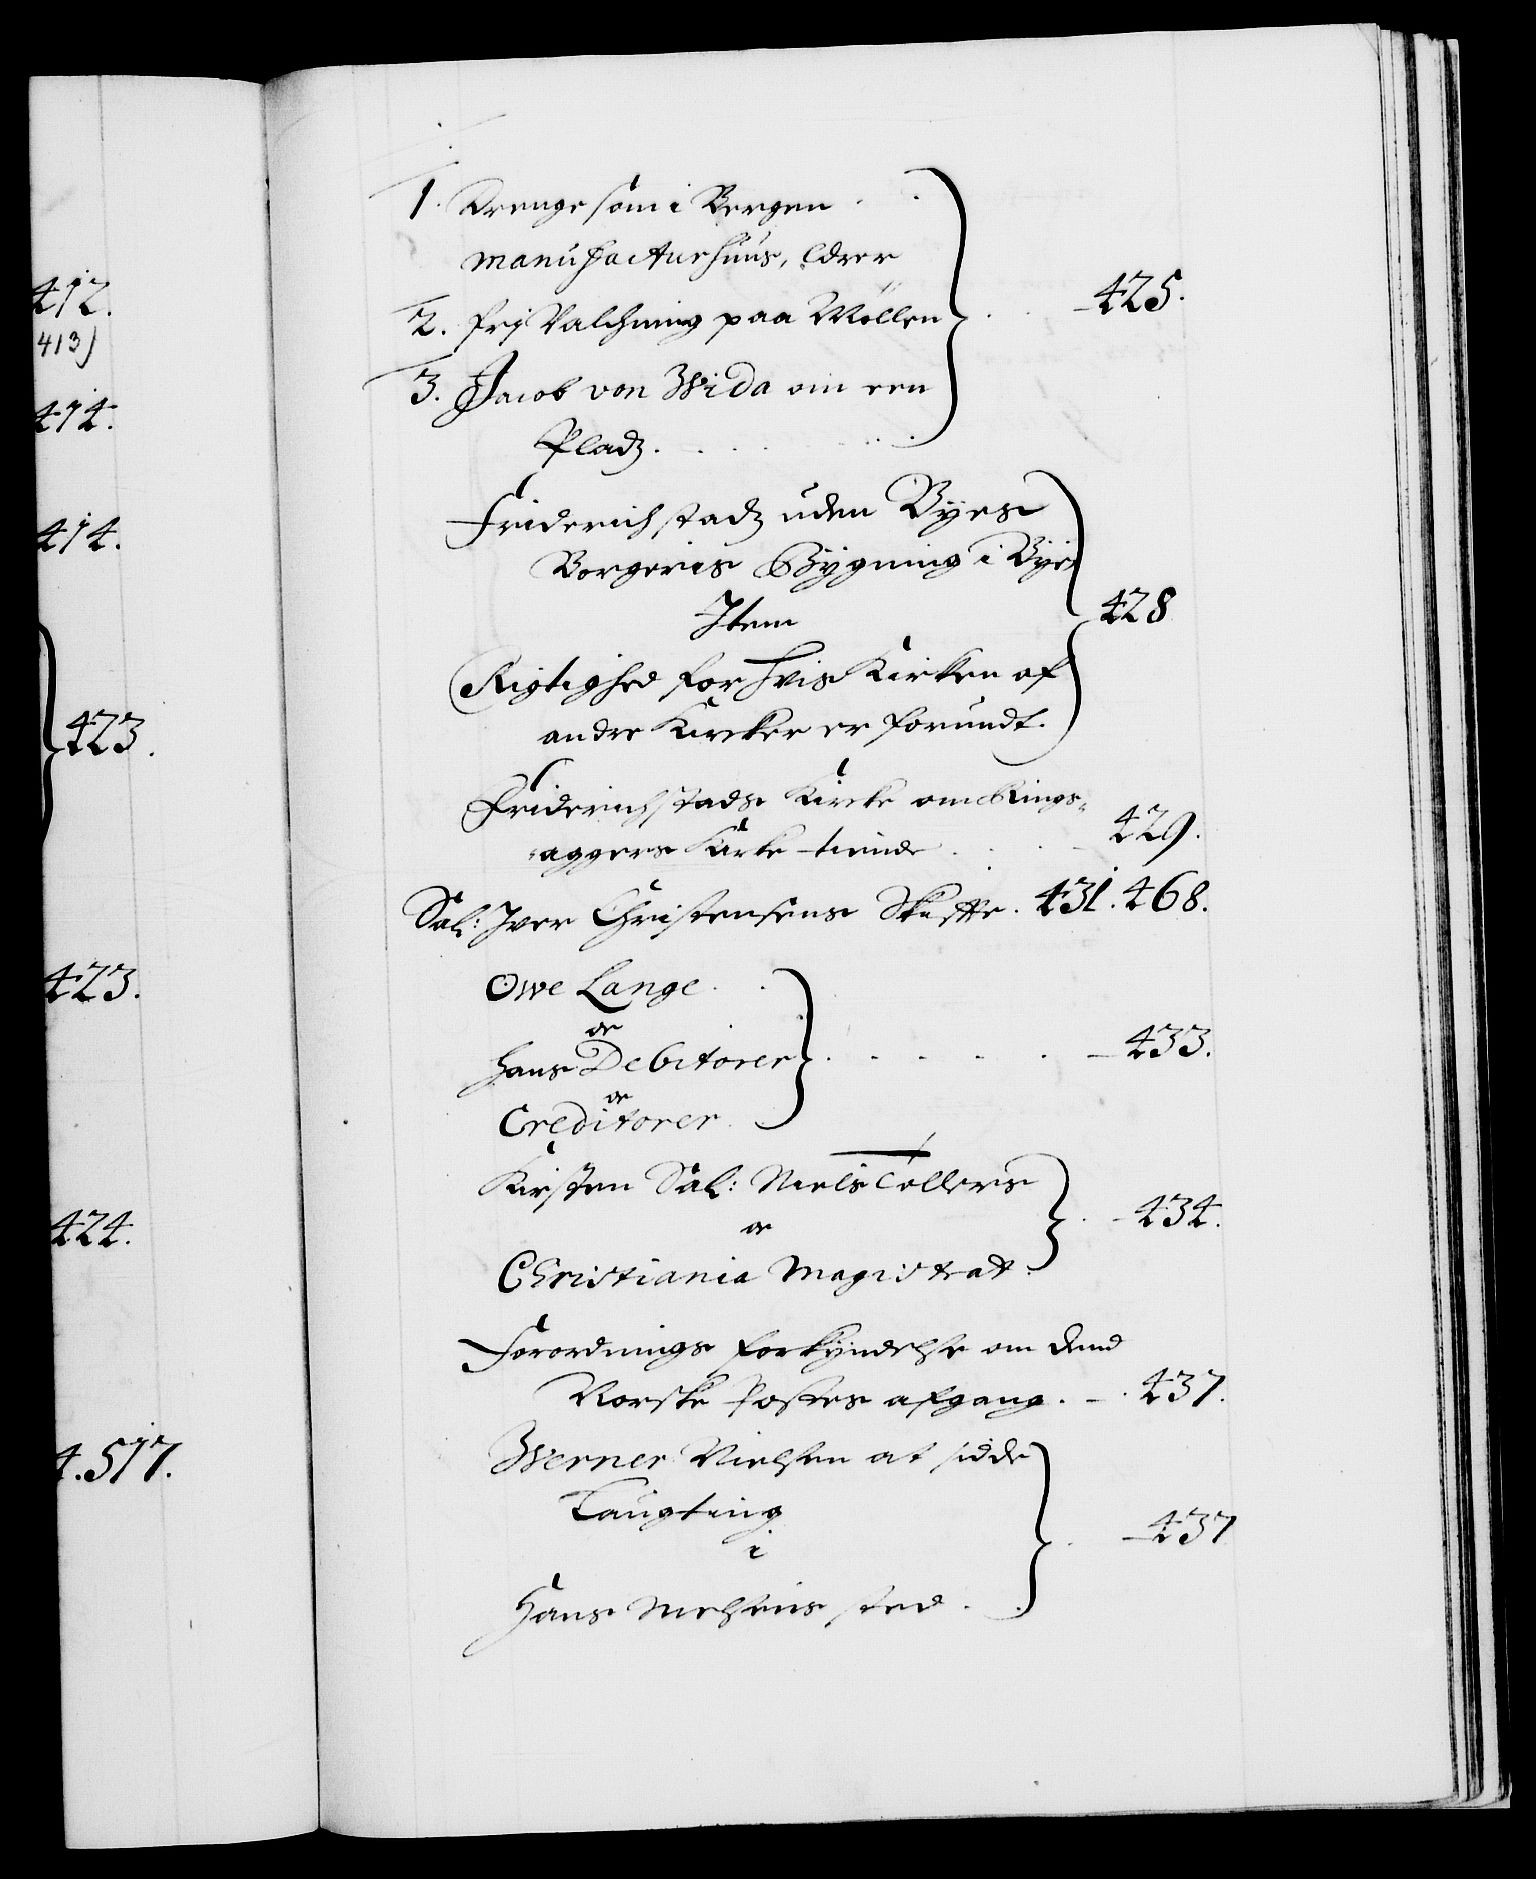 412.
413)
414.
414.
423.
423.
424.
4.517.
1. Drenge som i Bergen
manufactur huus, lærer
2. frj Valchning paa Møllen
3. Jacob von Wida om een
Pladz.
425.
Friderichstadz uden Byes
Borgeris Bygning i Bye
Item
Rigtighed for hvis Kirken af
andre Kircker er forundt.
428
Friderichstads Kircke om Rings-
aggers Kirke-tiende
429.
Sal: Iver Christensens Skifte. 431. 468.
Owe Lange
oc
hans Debitorer
oc
Creditorer.
433.
Kirsten Sal: Niels Tollers
oc
Christiania Magistrat.
434.
Forordnings forkyndelse om dend
Norske Postes afgang. 437.
Werner Nielsen at sidde
Laugting
i
Hans Nielsens sted.
437